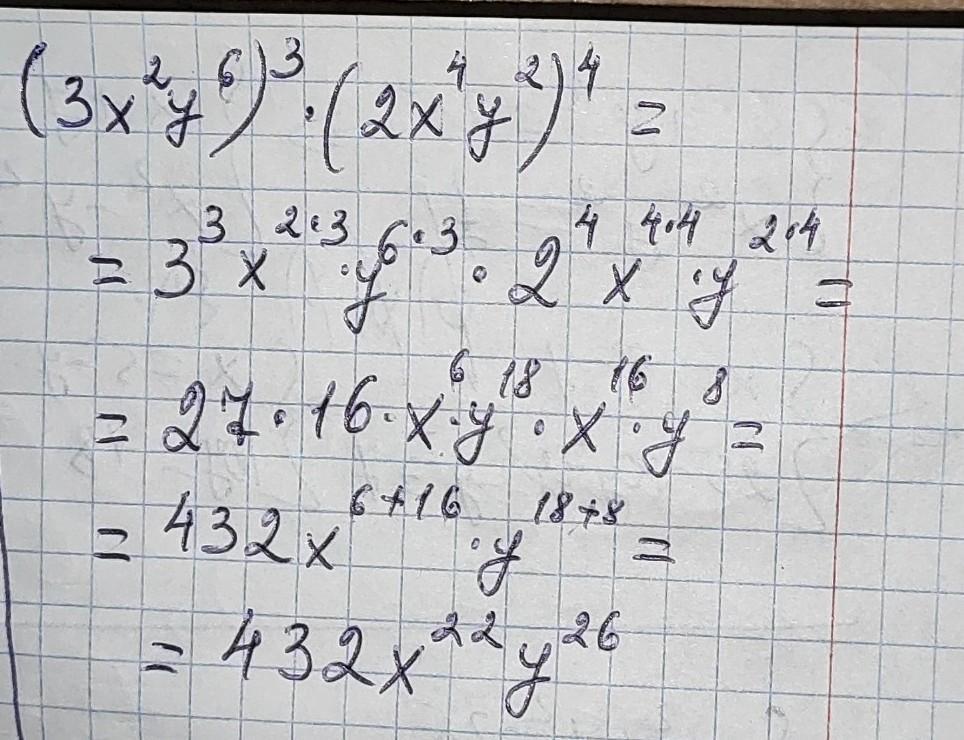 (3x²y⁶)³·(2x⁴y²)⁴=
=3³x²˙³·y⁶˙³·2⁴x⁴˙⁴·y²˙⁴=
=27·16·x⁶·y¹⁸·x¹⁶·y⁸=
=432x⁶⁺¹⁶·y¹⁸⁺⁸=
=432x²²y²⁶